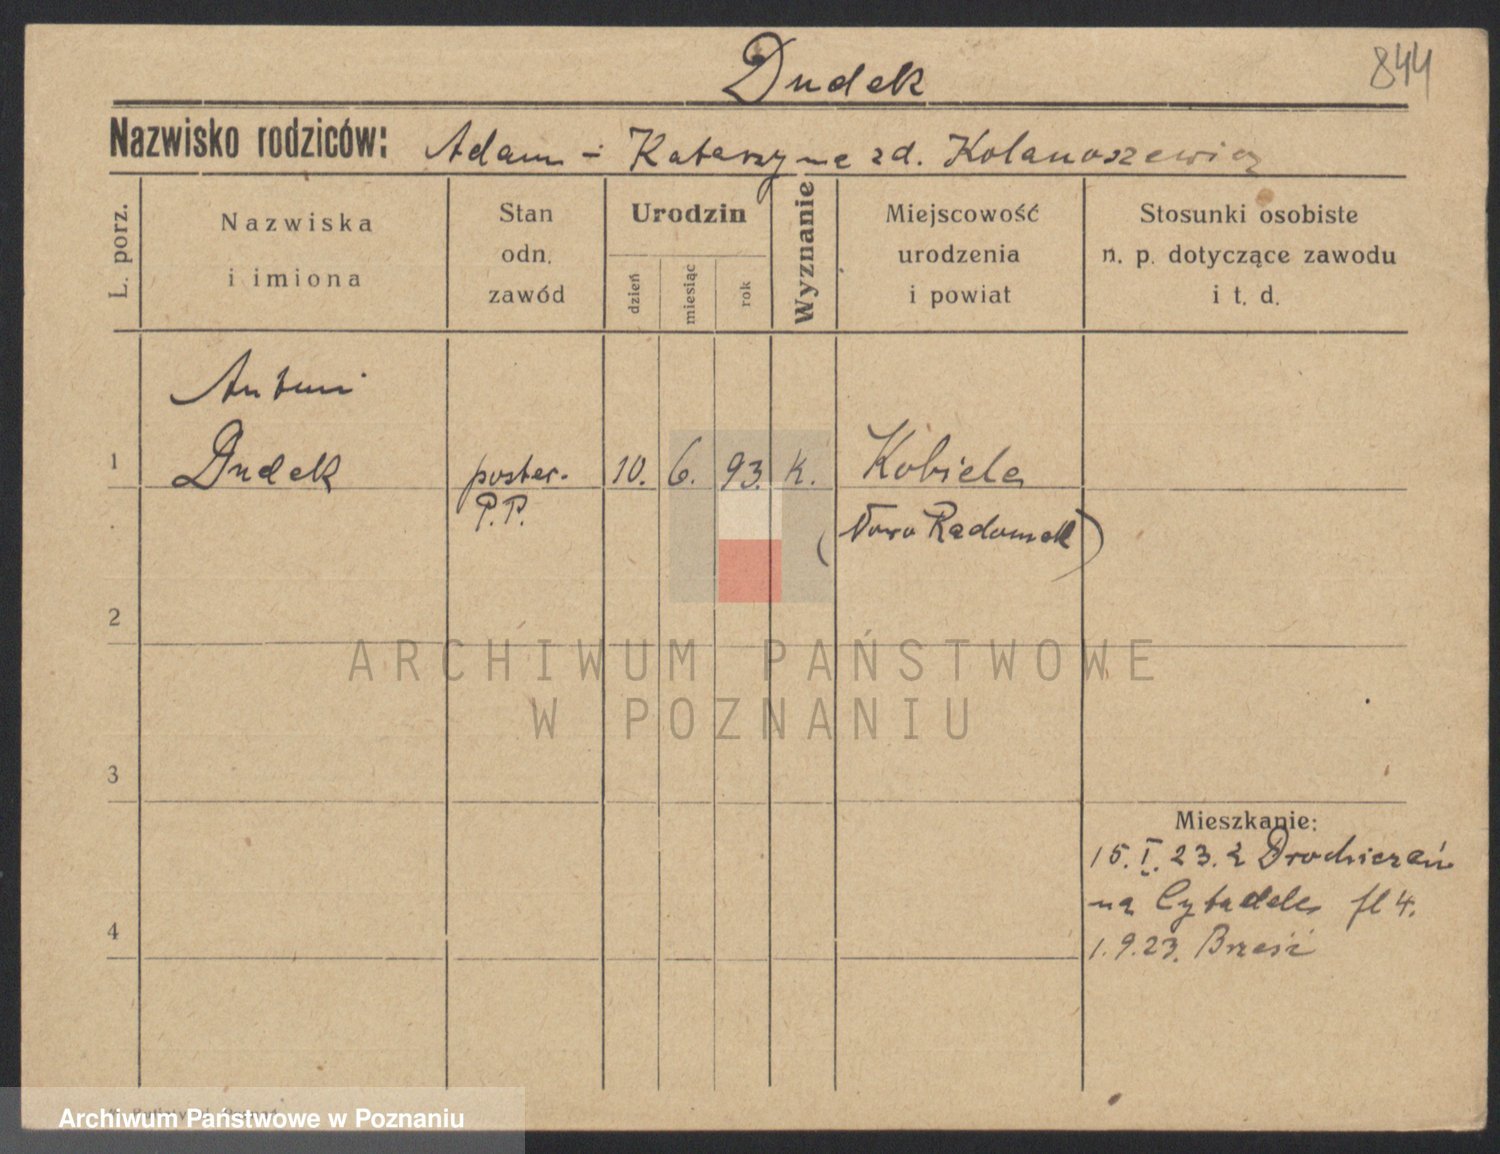 844
Dudek
Nazwisko rodziców: Adam - Katarzyna zd. Kolanoszewicz
L. porz.
Nazwiska
i imiona
Stan
odn.
zawód
Urodzin
dzień
miesiąc
rok
Wyznanie
Miejscowość
urodzenia
i powiat
Stosunki osobiste
n. p. dotyczące zawodu
i t. d.
Antoni
1 Dudek poster. 10. 6. 93. k. Kobiele
P.P. (Nowo Radomsk)
2
ARCHIWUM PAŃSTWOWE
W POZNANIU
3
Mieszkanie:
15.I.23. z Drohiczyn
na Cytadele fl 4.
4
1.9.23. Brześć
Archiwum Państwowe w Poznaniu